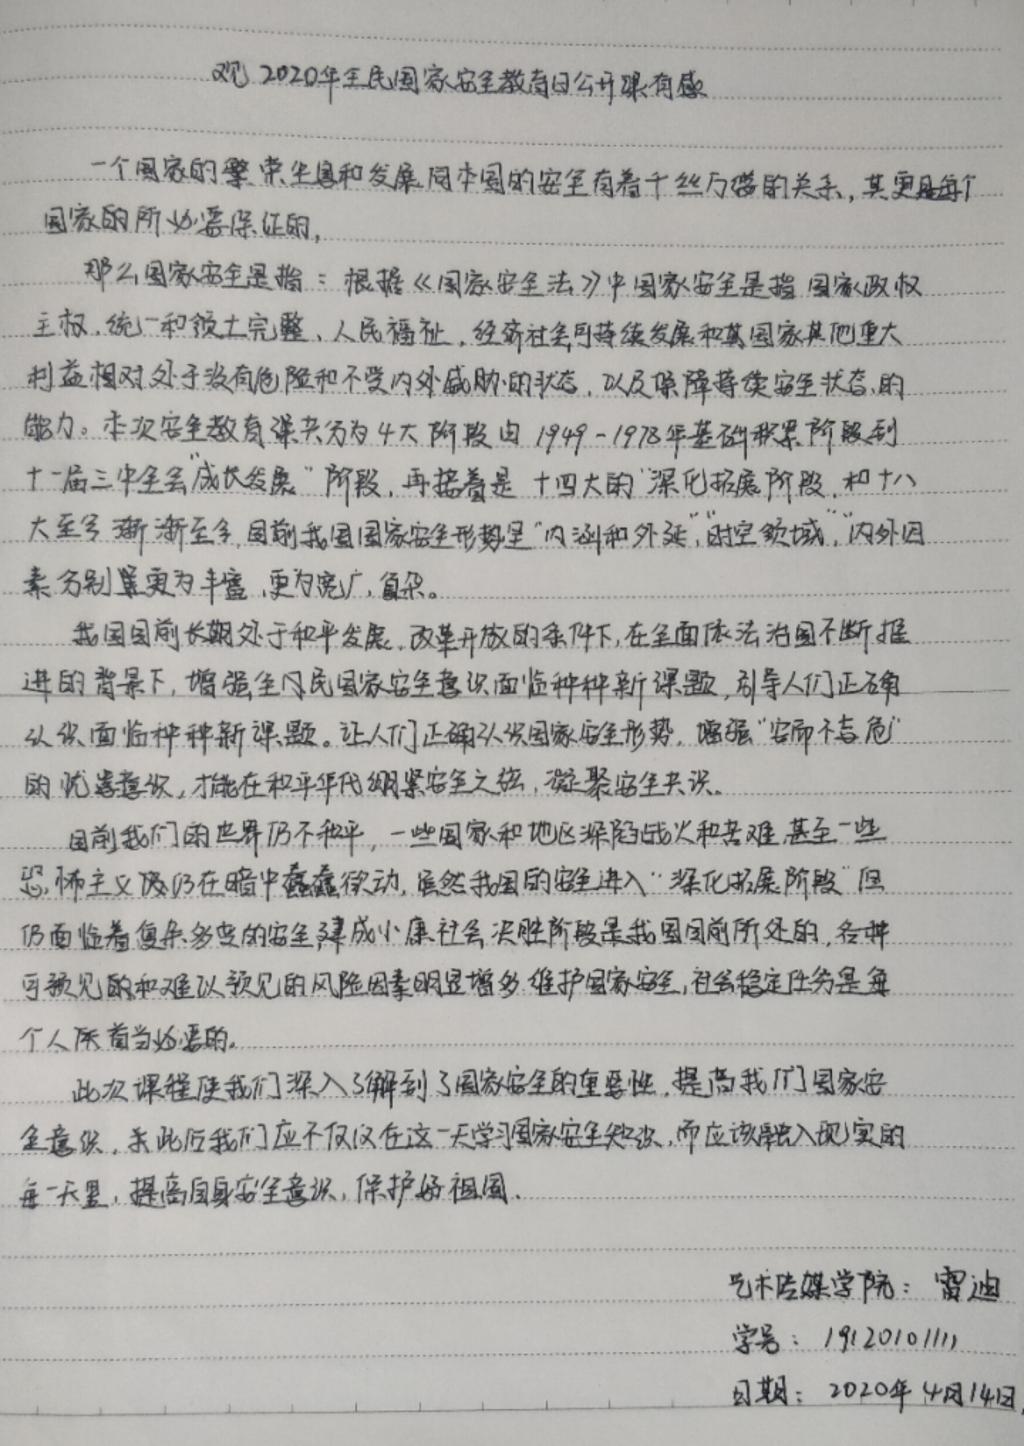 观2020年全民国家安全教育日公开课有感
一个国家的繁荣生息和发展同本国的安全有着千丝万缕的关系,其更是每个
国家的所必要保证的,
那么国家安全是指:根据《国家安全法》中国家安全是指国家政权
主权、统一和领土完整、人民福祉,经济社会可持续发展和国家其他重大
利益相对处于没有危险和不受内外威胁的状态,以及保障持续安全状态的
能力。本次安全教育课共分为4大阶段由1949-1978年基础积累阶段到
十一届三中全会"成长发展"阶段,再接着是十四大的"深化拓展阶段,和十八
大至今渐渐至今,目前我国国家安全形势是"内涵和外延","时空领域","内外因
素分别更为丰富,更为宽广,复杂。
我国目前长期处于和平发展,改革开放的条件下,在全面依法治国不断推
进的背景下,增强全民国家安全意识面临种种新课题,引导人们正确
认识面临种种新课题。让人们正确认识国家安全形势,增强"安而不忘危"
的忧患意识,才能在和平年代绷紧安全之弦,凝聚安全共识。
目前我们的世界仍不和平,一些国家和地区深陷战火和苦难,甚至一些
恐怖主义仍在暗中蠢蠢欲动,虽然我国的安全进入"深化拓展阶段"但
仍面临着复杂多变的安全,建成小康社会决胜阶段是我国目前所处的,各种
可预见的和难以预见的风险因素明显增多,维护国家安全,社会稳定任务是每
个人所首当必要的。
此次课程使我们深入了解到了国家安全的重要性,提高我们国家安
全意识,来此后我们应不仅仅在这一天学习国家安全知识,而应该融入现实的
每一天里,提高自身安全意识,保护好祖国.
艺术传媒学院:雷迪
学号:19120101111
日期:2020年4月14日,